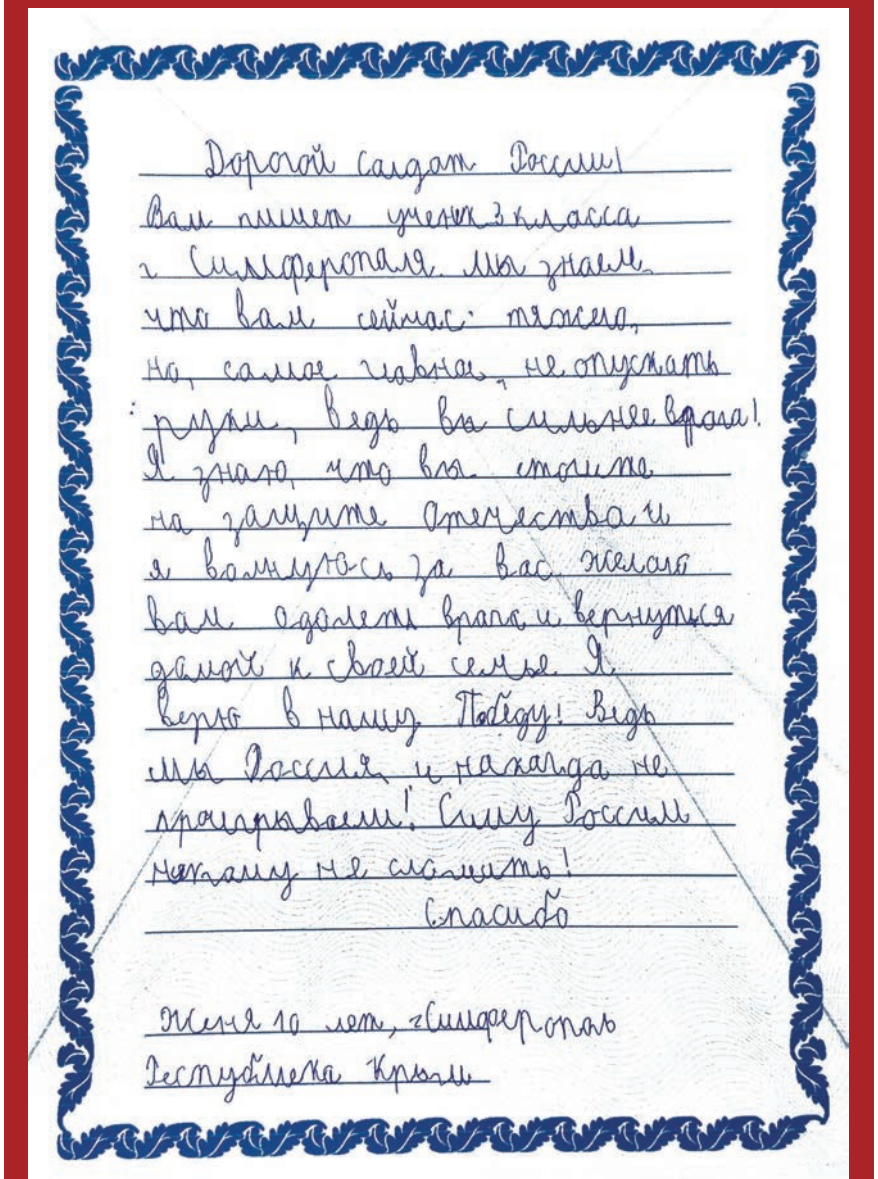 Дорогой салдат России!
Вам пишет ученик 3 класса
г Симферопаля. мы знаем
что вам сейчас тяжело,
но, самое главное, не опускать
руки, ведь вы сильнее врага!
Я знаю, что вы стоите
на защите Отечества и
я волнуюсь за вас, желаю
вам одолеть врага и вернуться
дамой к своей семье. Я
верю в нашу Победу! Ведь
мы Россия, и накагда не
проигрываем! Силу России
никаму не сломить!
Спасибо
Женя 10 лет, г Симферополь
Республика Крым